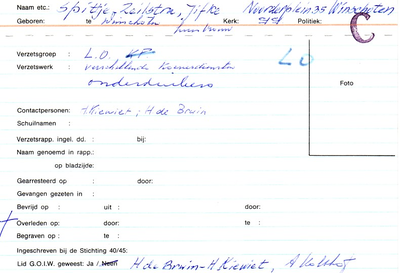 Naam etc.: Spitje-Zeilstra, Jifke Noorderplein 35 Winschoten
Geboren: te Winschoten Kerk: Politiek: C
Verzetsgroep : L.O. LO
Verzetswerk : verschillende Koeriersdiensten
onderduikers
Foto
Contactpersonen: H Kiewiet; H de Bruin
Schuilnaam :
Verzetsrapp. ingel. dd. : bij:
Naam genoemd in rapp.:
op bladzijde:
Gearresteerd op : door:
Gevangen gezeten in :
Bevrijd op : uit : door:
Overleden op : door: te :
Begraven op : te :
Ingeschreven bij de Stichting 40/45:
Lid G.O.I.W. geweest: Ja / Neen H de Bruin - H Kiewiet, A